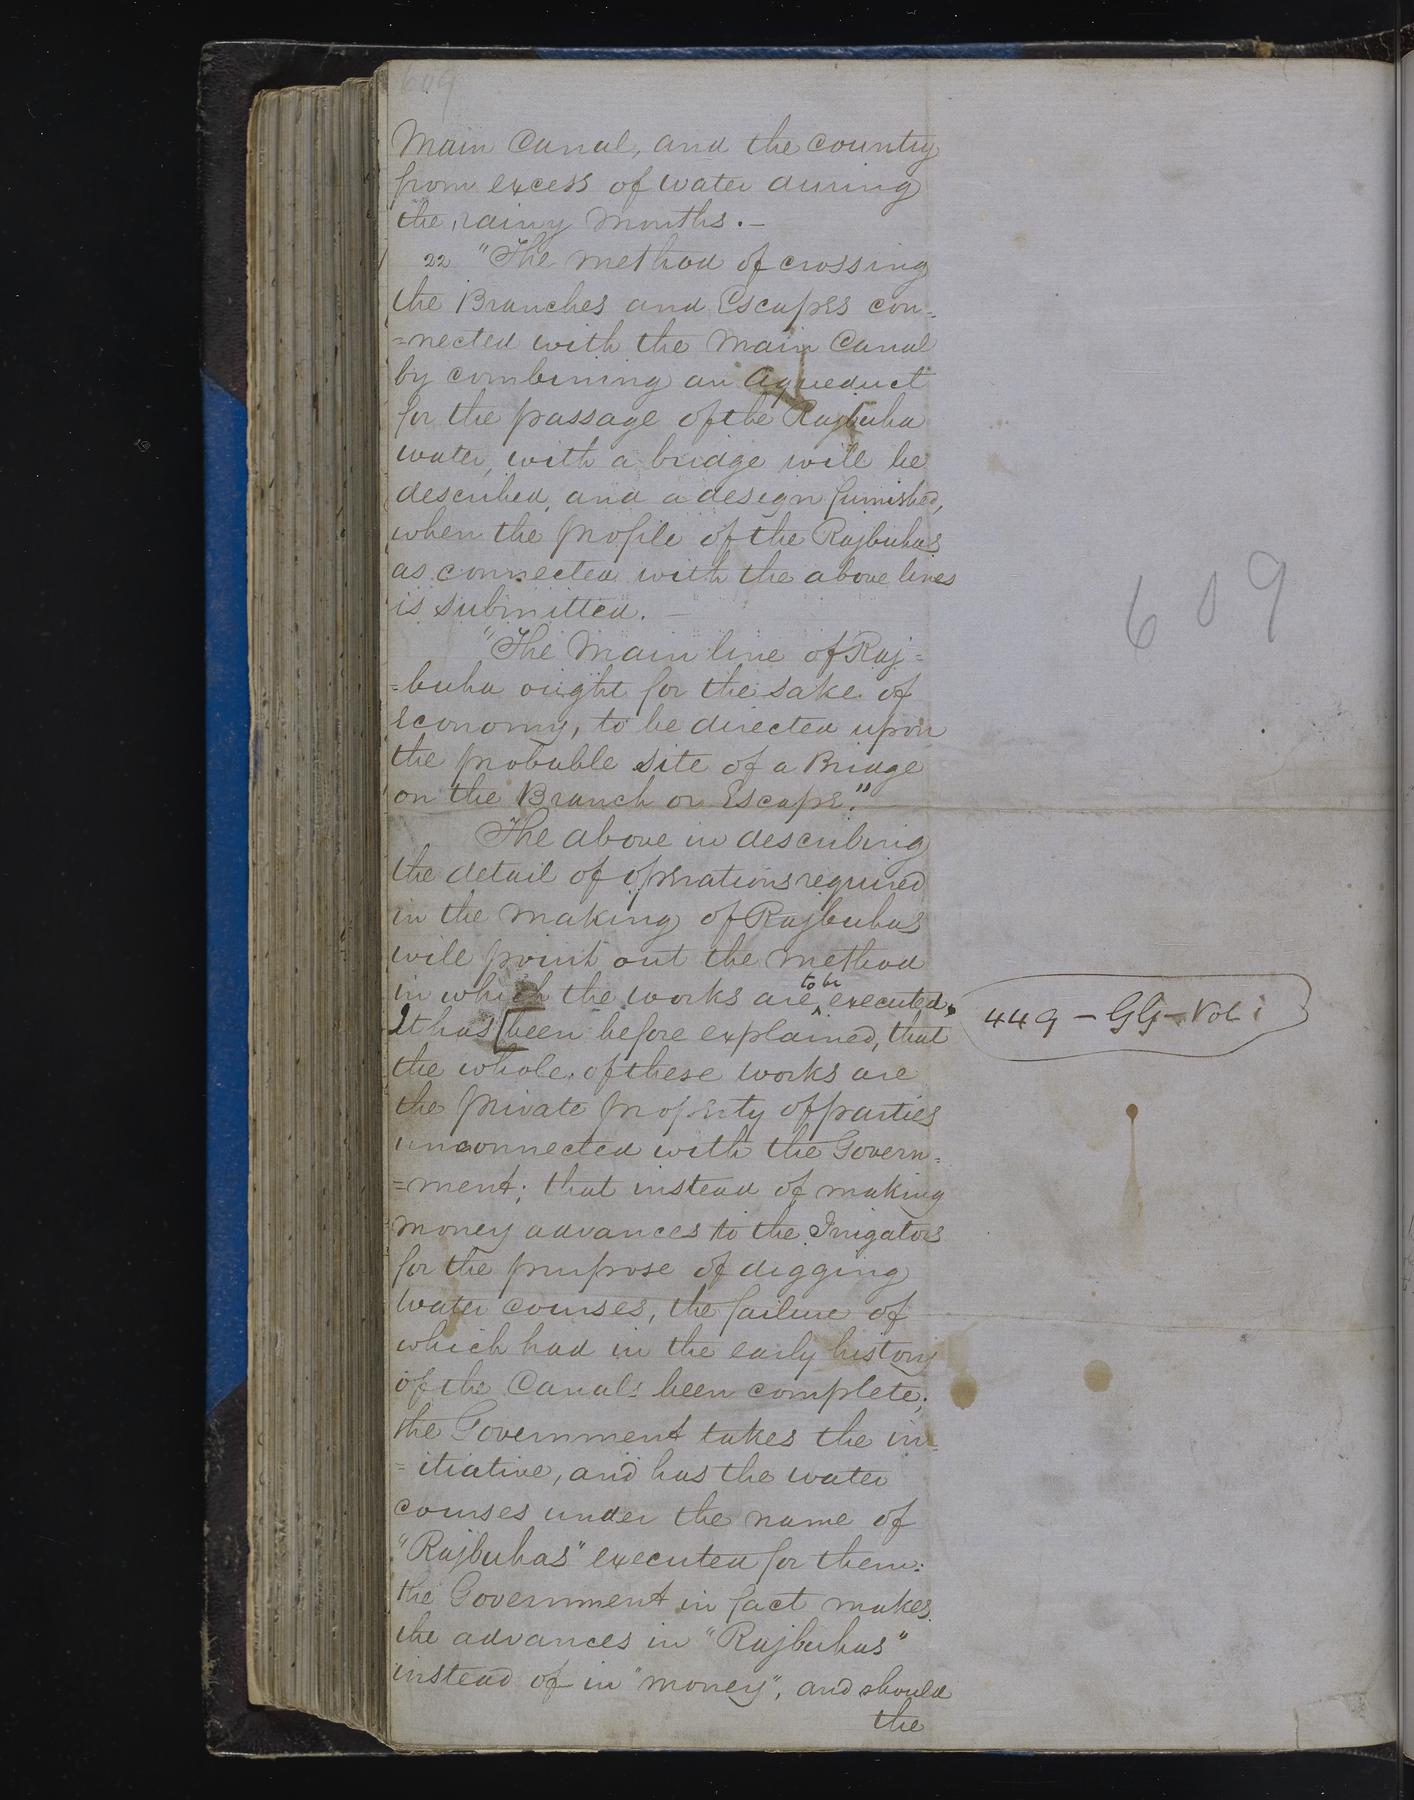 609
Main Canal, and the country
from excess of water during
the rainy months. —
22 "The method of crossing
the Branches and Escapes con-
=nected with the Main Canal
by combining an Aqueduct
for the passage of the Rajbuha
water, with a bridge will be
described, and a design furnished,
when the profile of the Rajbuhas
as connected with the above lines
is submitted. —
"The Main line of Raj=
=buha ought for the sake of
economy, to be directed upon
the probable site of a Bridge
on the Branch or Escape."
The above in describing
the detail of operations required
in the making of Rajbuhas
will point out the method
in which the works are to be executed.
It has [been before explained, that
the whole of these works are
the private property of parties
unconnected with the Govern=
=ment; that instead of making
money advances to the Irrigators
for the purpose of digging
water courses, the failure of
which had in the early history
of the Canals been complete;
the Government takes the in=
=itiative, and has the water
courses under the name of
"Rajbuhas" executed for them:
the Government in fact makes
the advances in "Rajbuhas"
instead of in "money", and should
the
609
449 – GG – Vol i